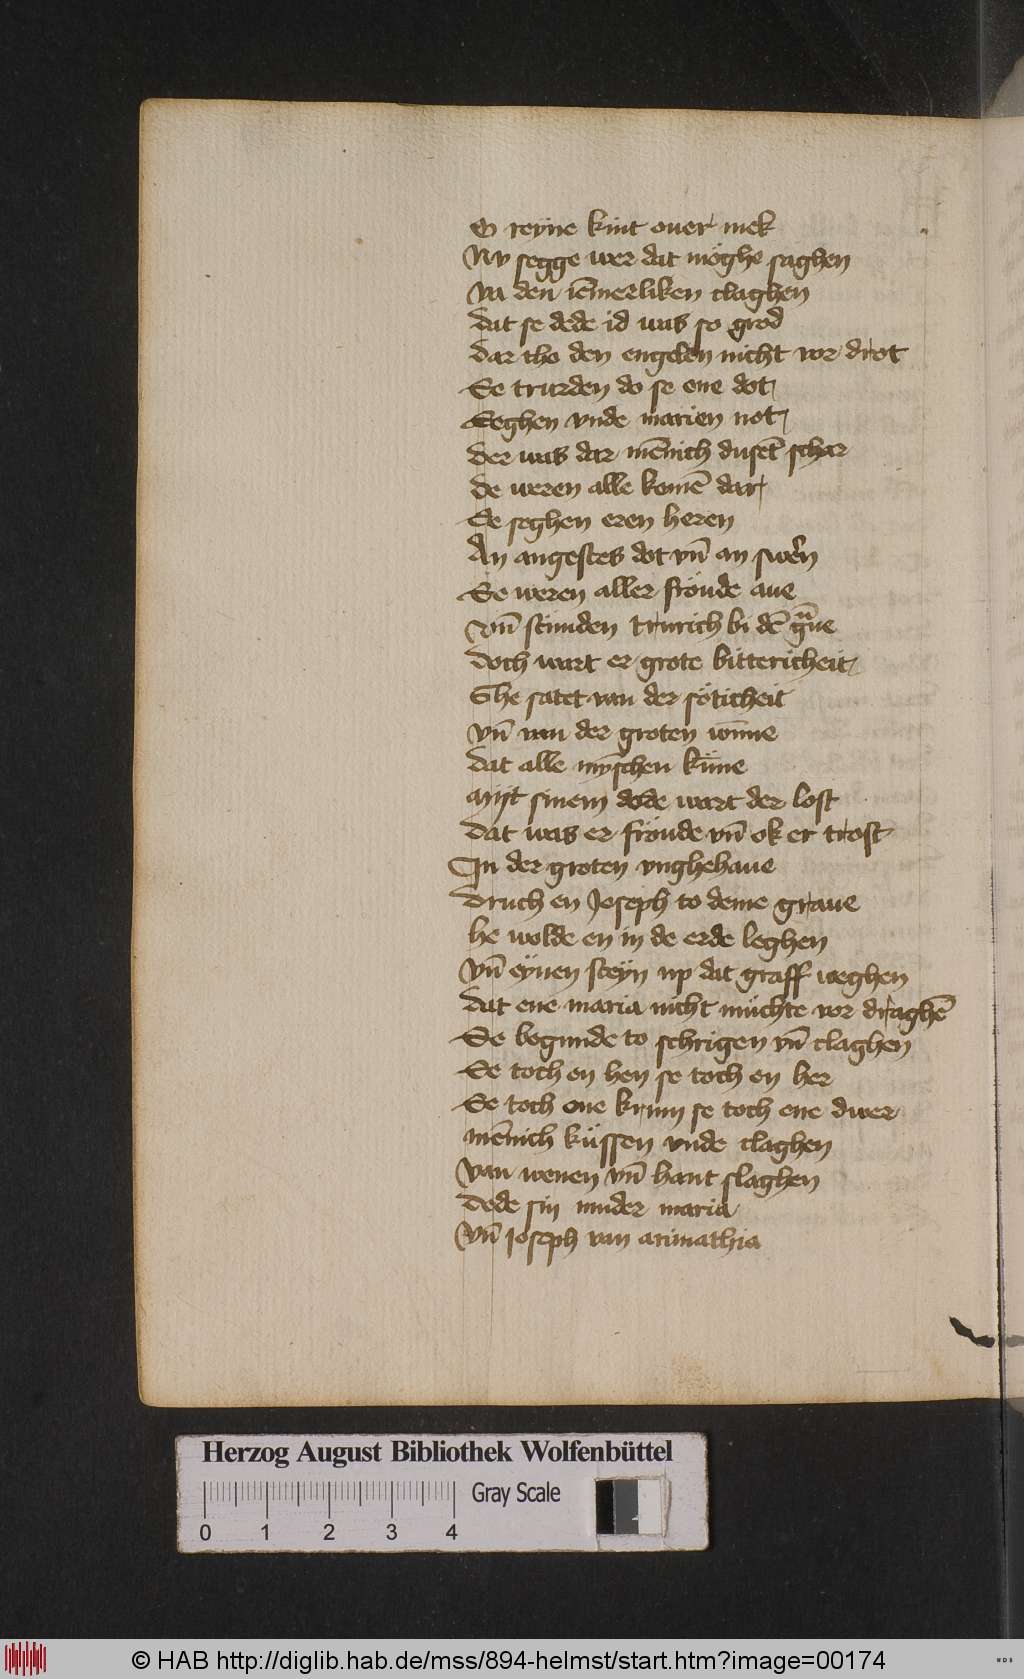 O reyne kint ouer mek
Nv segge wer dat möghe saghen
Va den iēmerliken claghen
dat se dede id was so grod
dar tho den engelen nicht vor drot
Se trurden do se ene dot
Seghen vnde marien not
der was dar mēnich dusēt schar
de weren alle komē dar
Se seghen eren heren
An angestes dot vn̄ an swern
Se weren aller fröude aue
vn̄ stunden trurich bi dē
doch wart er grote bittericheit
Ghe satet van der söticheit
vn̄ van der groten wn̄ne
dat alle mȳschen küne
myt sinem dode wart der lost
dat was er fröude vn̄ ok er trost
In der groten vnghehaue
druch en Joseph to deme graue
he wolde en in de erde leghen
vn̄ eynen steyn up dat graff weghen
dat ene maria nicht müchte vor draghē
Se begunde to schrigen vn̄ claghen
Se toch en hen se toch en her
Se toch ene krum se toch ene dwer
mēnich küssen vnde claghen
van wenen vn̄ hant slaghen
dede sin muder maria
vn̄ Joseph van arimathia
Herzog August Bibliothek Wolfenbüttel
Gray Scale
0 1 2 3 4
© HAB http://diglib.hab.de/mss/894-helmst/start.htm?image=00174